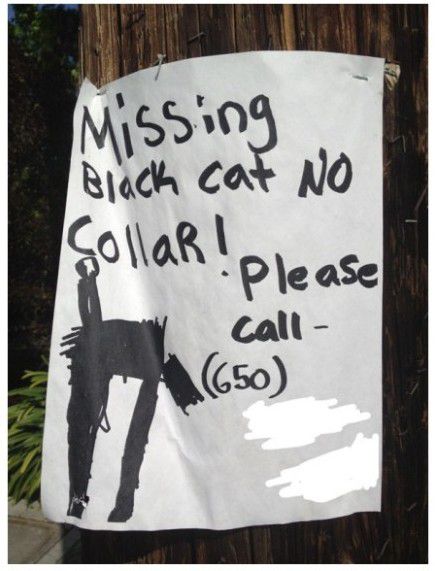 Missing
Black cat NO
Collar!
Please
call -
(650)